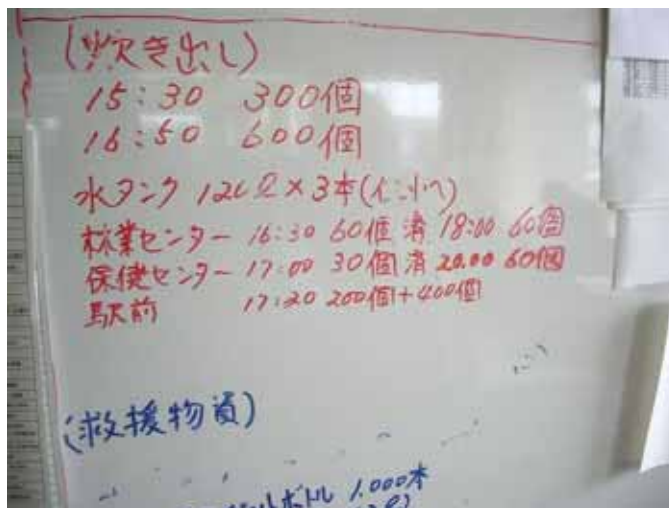 (炊き出し)
15:30 300個
16:50 600個
水タンク 12ℓ×3本
林業センター 16:30 60個 済 18:00 60個
保健センター 17:00 30個 済 20.00 60個
駅前 17:20 200個+400個
(救援物資)
ボトル 1.000本